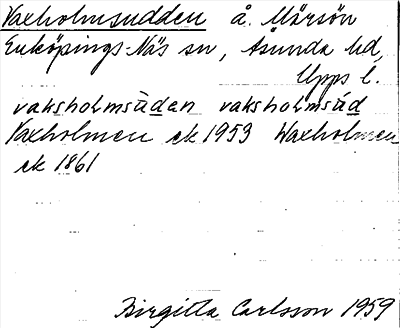 Vaxholmsudden å. Mårsön
Enköpings-Näs sn, Åsunda hd,
Upps l.
vaksholmsùdan vaksholmsùd
Vaxholmen ek 1953 Waxholmen
ek 1861
Birgitta Carlsson 1959